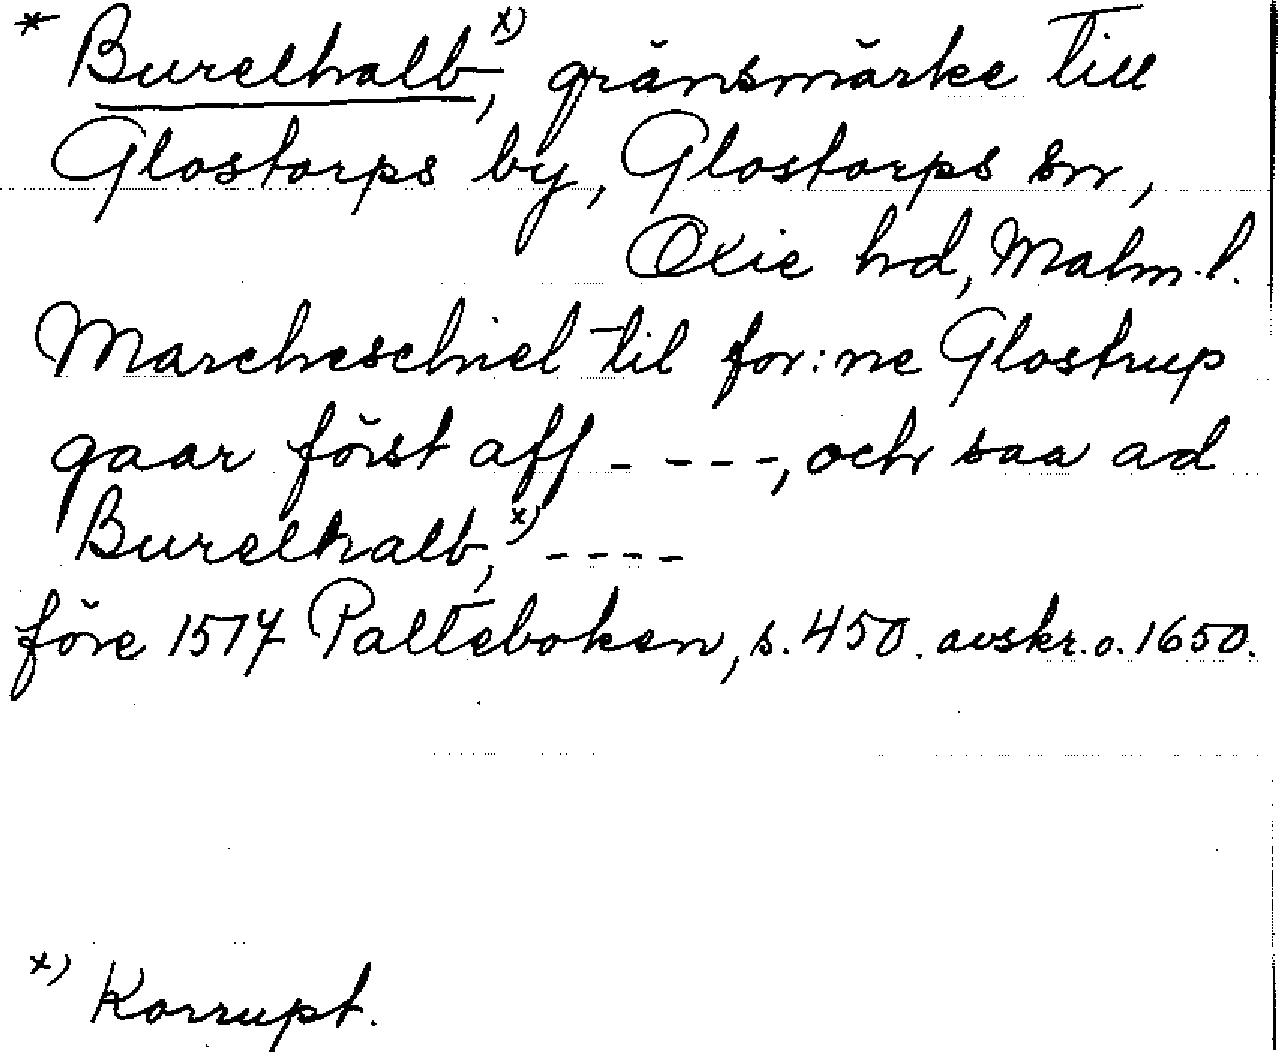 * Burelhalb,x) gränsmärke till
Glostorps by, Glostorps sn,
Oxie hd, Malm.l.
Marcheschiel til for:ne Glostrup
gaar först aff - - - -, och saa ad
Burelhalb,x) - - - -
före 1517 Palteboken, s. 450. avskr. o. 1650.
x) Korrupt.